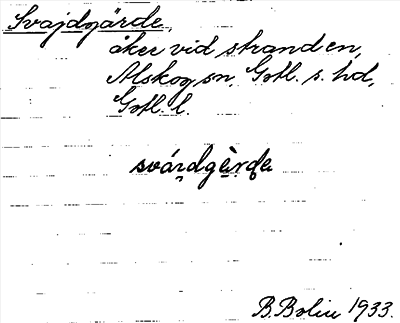 Svajdgärde,
åker vid stranden,
Alskog sn, Gotl. s. hd,
Gotl. l.
svárdgèrda
B. Bolin 1933.